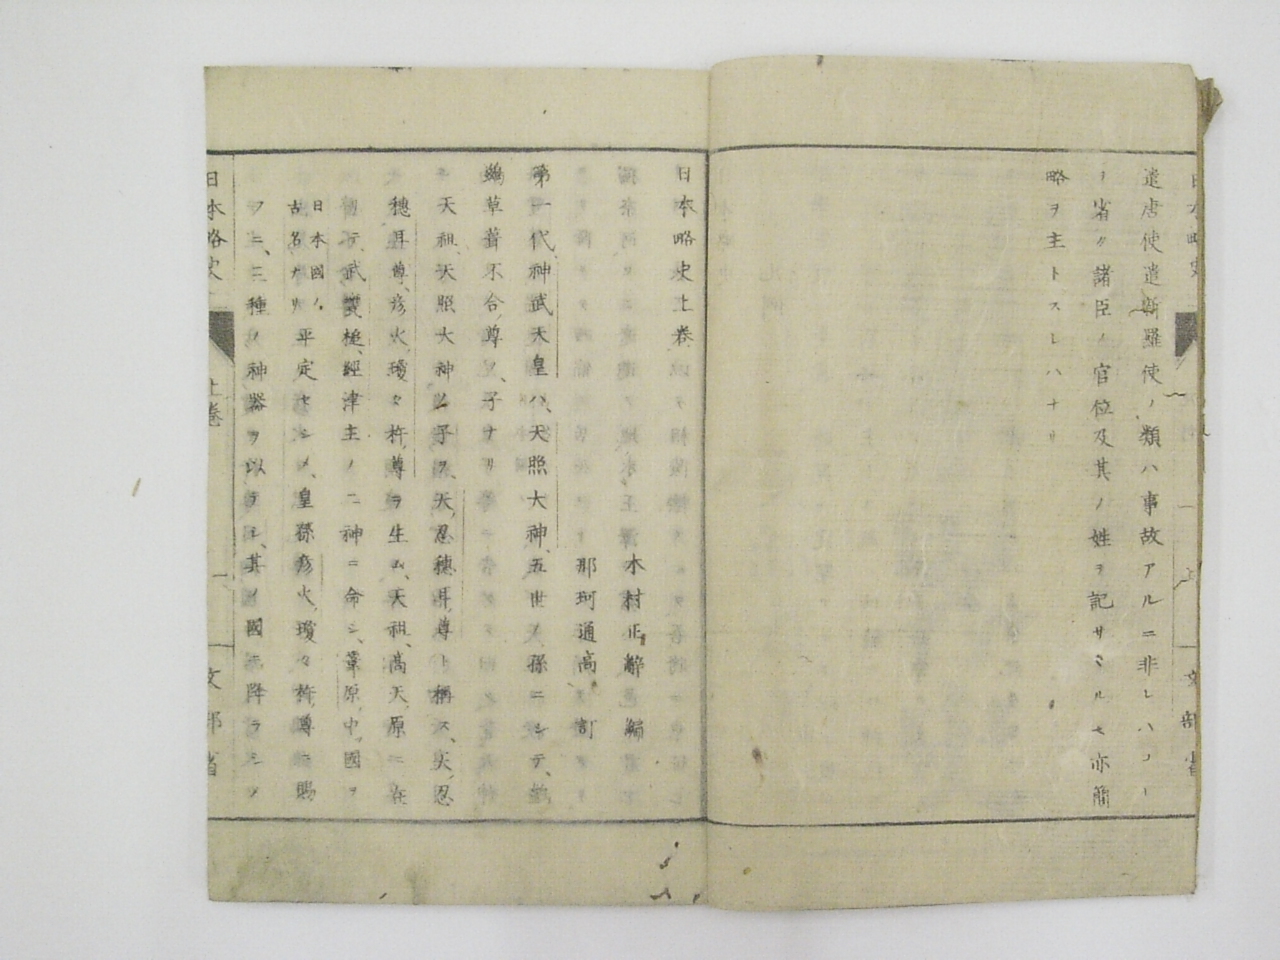 遣唐使遣新羅使ノ類ハ事故アルニ非レハ
ノ省ク諸臣ノ官位及其ノ姓ヲ記サヾルモ亦簡
略ヲ主トスレハナリ
日本略史
文部省
日本略史上卷
木村正辭 編
那珂通高 訂
第一代神武天皇ハ、天照大神、五世ノ孫ニシテ、
鷀草葺不合尊ノ子ナリ
天祖天照大神ノ子ヲ、天忍穗耳尊ト稱ス、天忍
穗耳尊、彦火瓊々杵尊ヲ生ム、天祖、高天原ニ在
テ、武甕槌、經津主ノ二神ニ命シ、葦原中國ヲ
日本國ノ
古名ナリ
平定セシメ、皇孫彦火瓊々杵尊ニ賜
フニ、三種ノ神器ヲ以テシ、其ノ國ニ降ラシメ
日本略史
上卷
一
文部省